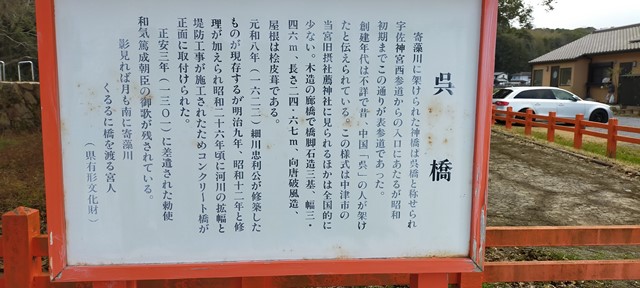 呉橋
寄藻川に架けられた神橋は呉橋と称せられ
宇佐神宮西参道からの入口にあたるが昭和
初期までこの通りが表参道であった。
創建年代は不詳で昔、中国「呉」の人が架け
たと伝えられている。この様式は中津市の
当宮旧摂社薦神社に見られるほかは全国的に
少ない。木造の廊橋で橋脚石造三基、幅三・
四六ｍ、長さ二四・六七ｍ、向唐破風造、
屋根は桧皮葺である。
元和八年（一六二二）細川忠利公が修築した
ものが現存するが明治九年、昭和十二年と修
理が加えられ昭和二十六年頃に河川の拡幅と
堤防工事が施工されたためコンクリート橋が
正面に取付けられた。
正安三年（一三〇一）に差遣された勅使
和気篤成朝臣の御歌が残されている。
影見れば月も南に寄藻川
くるるに橋を渡る宮人
（県有形文化財）